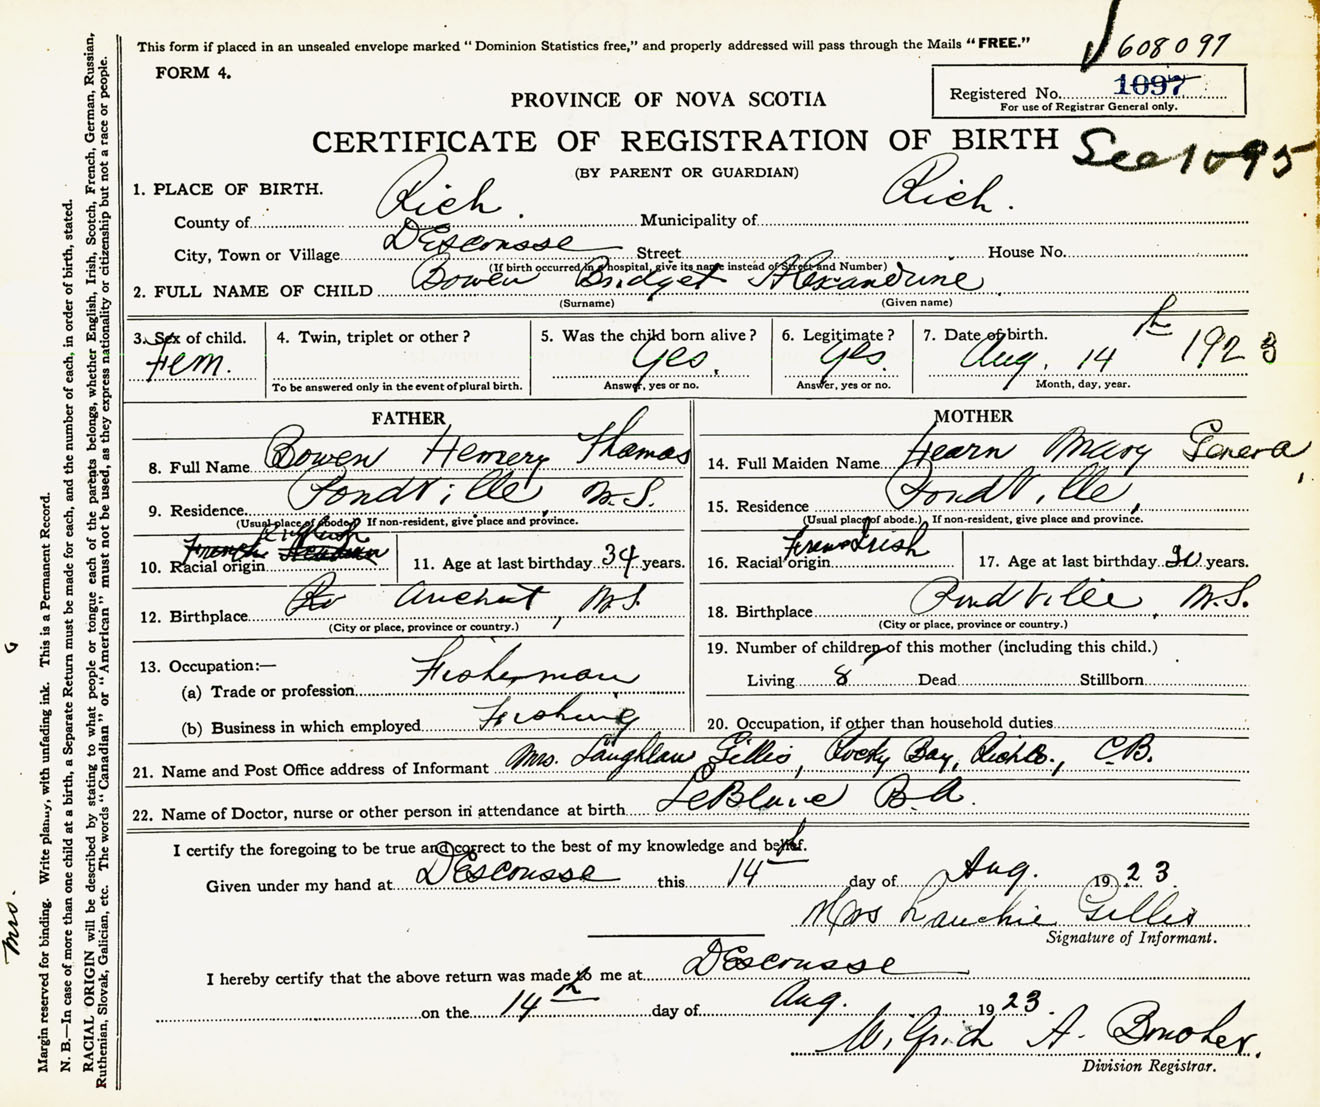 This form if placed in an unsealed envelope marked "Dominion Statistics free," and properly addressed will pass through the Mails "FREE."
608097
FORM 4.
Registered No. 1097
For use of Registrar General only.
PROVINCE OF NOVA SCOTIA
CERTIFICATE OF REGISTRATION OF BIRTH
See 1095
(BY PARENT OR GUARDIAN)
1. PLACE OF BIRTH.
County of Rich. Municipality of Rich.
City, Town or Village DEscousse Street House No.
(If birth occurred in a hospital, give its name instead of Street and Number)
2. FULL NAME OF CHILD Bowen Bridget Alexandrine
(Surname) (Given name)
3. Sex of child. Fem.
4. Twin, triplet or other?
To be answered only in the event of plural birth.
5. Was the child born alive? Yes.
Answer, yes or no.
6. Legitimate? Yes.
Answer, yes or no.
7. Date of birth. Aug. 14th 1923
Month, day, year.
FATHER
8. Full Name Bowen Henery Thomas
9. Residence PondVille, N.S.
(Usual place of abode) If non-resident, give place and province.
10. Racial origin French English
11. Age at last birthday 34 years.
12. Birthplace Archat N.S.
(City or place, province or country.)
13. Occupation:—
(a) Trade or profession Fisherman
(b) Business in which employed Fishing
MOTHER
14. Full Maiden Name Hearn Mary Genera
15. Residence PondVille,
(Usual place of abode.) If non-resident, give place and province.
16. Racial origin Irish
17. Age at last birthday years.
18. Birthplace PondVille, N.S.
(City or place, province or country.)
19. Number of children of this mother (including this child.)
Living 8 Dead Stillborn
20. Occupation, if other than household duties
21. Name and Post Office address of Informant Mrs. Laughlan Gillis, Rocky Bay, C.B.
22. Name of Doctor, nurse or other person in attendance at birth LeBlanc B.A.
I certify the foregoing to be true and correct to the best of my knowledge and belief.
Given under my hand at DEscousse this 14th day of Aug. 1923.
Mrs Lauchie Gillis
Signature of Informant.
I hereby certify that the above return was made to me at DEscousse
on the 14th day of Aug. 1923.
Wilfrid A.
Division Registrar.
Margin reserved for binding. Write plainly, with unfading ink. This is a Permanent Record.
N. B.—In case of more than one child at a birth, a Separate Return must be made for each, and the number of each, in order of birth, stated.
RACIAL ORIGIN will be described by stating to what people or tongue each of the parents belongs, whether English, Irish, Scotch, French, German, Russian,
Ruthenian, Slovak, Galician, etc. The words "Canadian" or "American" must not be used, as they express nationality or citizenship but not a race or people.
Mrs. G